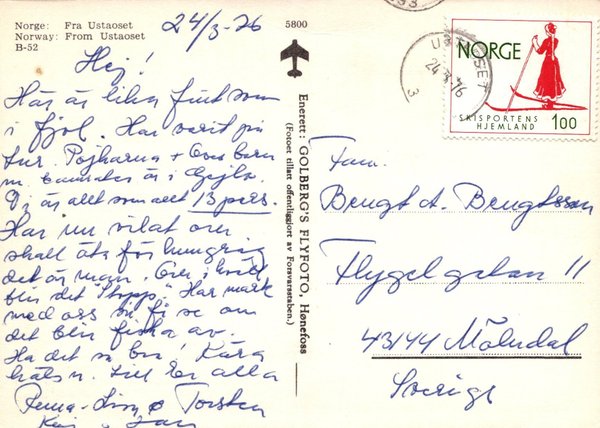 Norge: Fra Ustaoset
Norway: From Ustaoset
B-52
24/3-76
5800
Hej!
Här är lika fint som
i fjol. Har varit på
tur. Pojkarna + Oves barn
m. kamrater är i Geilo.
Vi är allt som allt 13 pers.
Har nu vilat oss
skall äta för hungrig
det är man. Över i kväll
blir det "Stopp". Har mask
med oss så få se om
det blir fiska av.
Ha det så bra! Kära
häls n. till Er alla
Torsten
Enerett: GOLBERG'S FLYFOTO, Hønefoss
(Fotoet tillatt offentliggjort av Forsvarsstaben.)
24 3 76
3
NORGE
SKISPORTENS
HJEMLAND
100
Fam.
Bengt A. Bengtsson
Flygelgatan 11
43144 Mölndal
Sverige